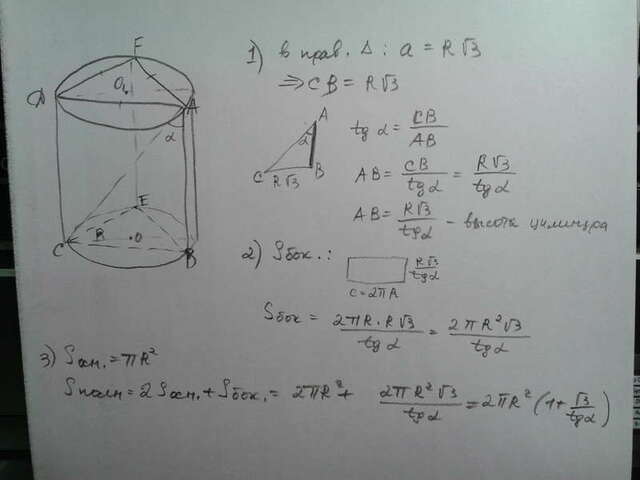 F
D O₁ A
α
E
C R O B
1) в прав. Δ: a = R√3
⇒ CB = R√3
A
α
C R√3 B
tg α = CB/AB
AB = CB/tg α = R√3/tg α
AB = R√3/tg α - высота цилиндра
2) Sбок.: R√3/tg α
C = 2πR
Sбок = 2πR · R√3/tg α = 2πR²√3/tg α
3) Sосн. = πR²
Sполн = 2Sосн. + Sбок. = 2πR² + 2πR²√3/tg α = 2πR² (1 + √3/tg α)